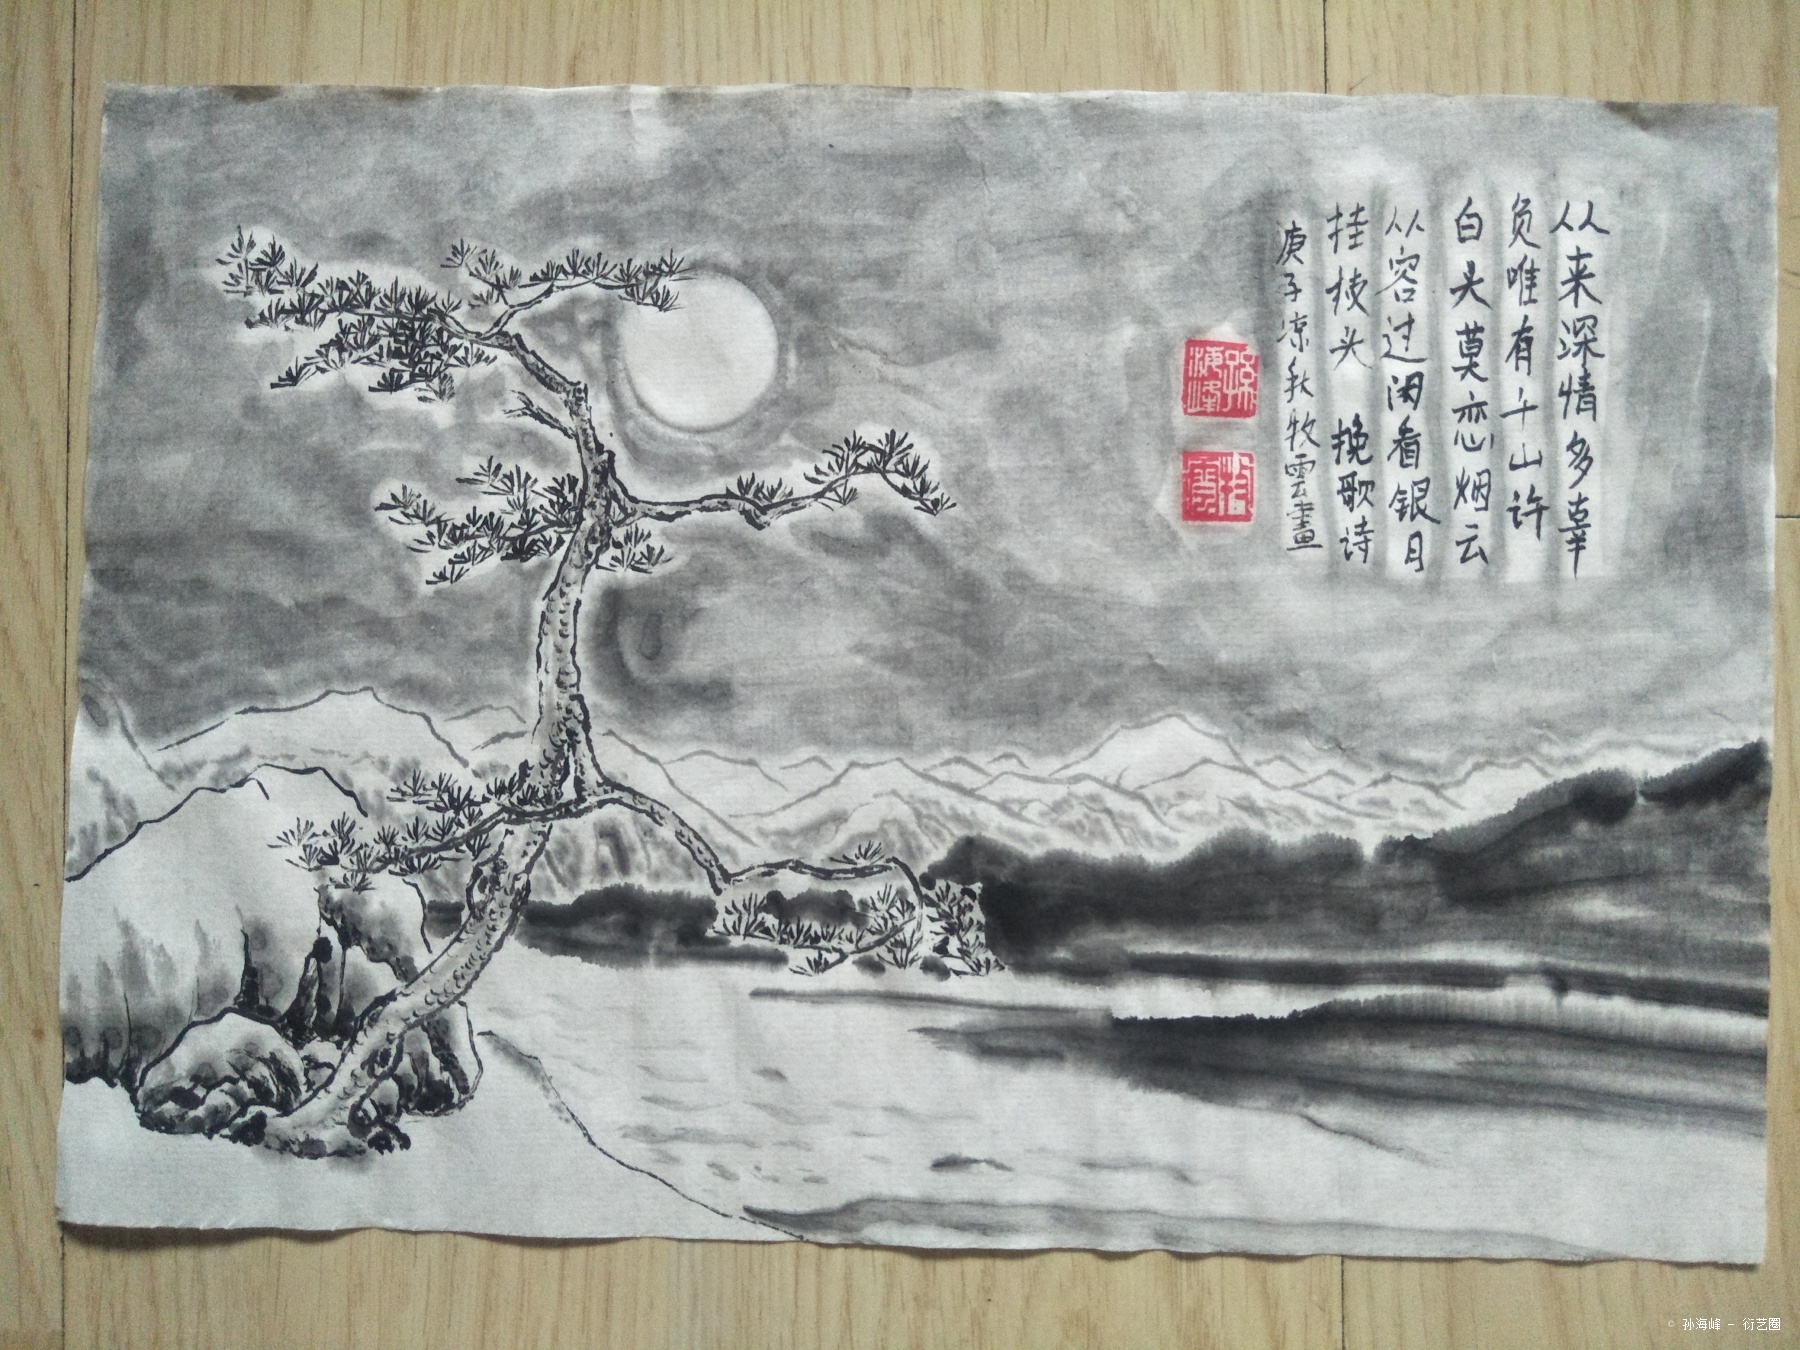 从来深情多辜
负唯有千山许
白头莫恋烟云
从容过闲看银月
挂枝头 挽歌诗
庚子凉秋牧雲畫
孫海峰
牧雲
© 孙海峰 - 衍艺圈